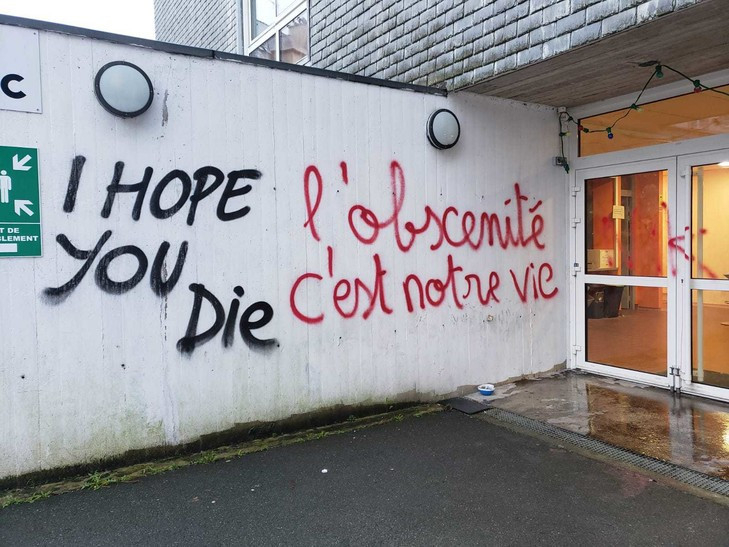 C
T DE
BLEMENT
I HOPE
YOU
Die
l'obscenité
c'est notre vie